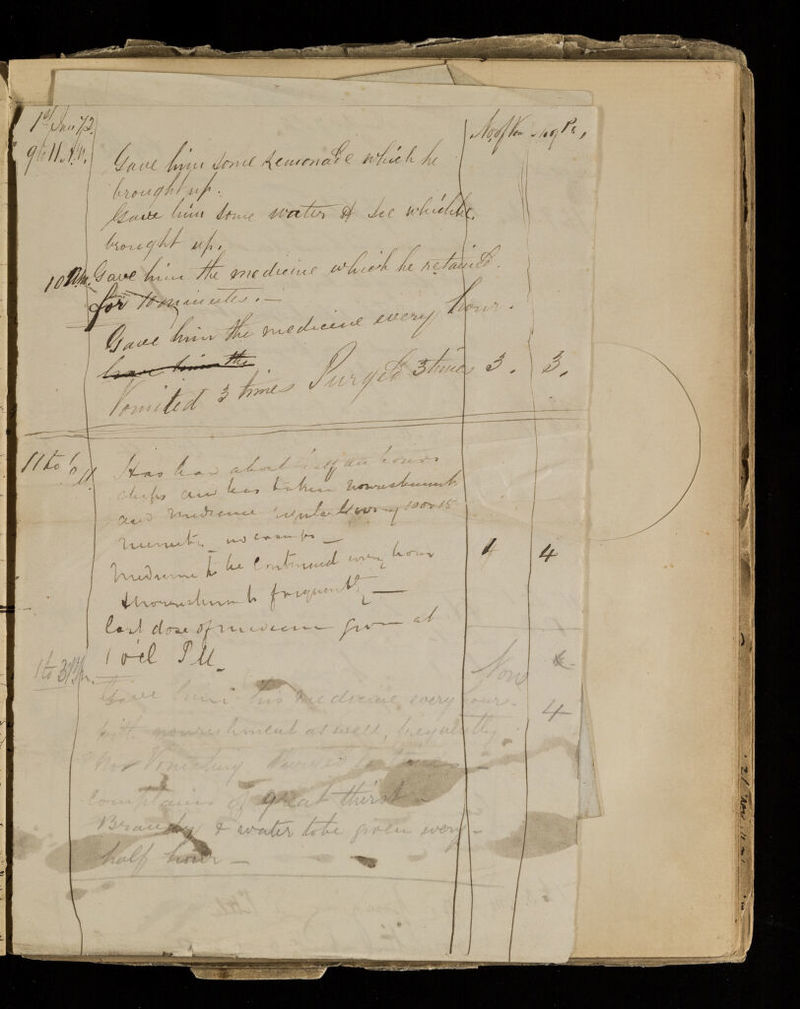 1st Jan 72.
No of Vom
9 to 11 A.M.
Gave him some Lemonade which he
brought up.
Gave him some water & Ice which he
brought up.
10 Am. Gave him the medicine which he retained
for 10 minutes. —
Gave him the medicine every hour.
Gave him the
Vomited 3 times Purged 3 times 3. 3.
11 to
Has had about half an hours
sleep and has taken nourishment
and medicine every 10 or 15
minutes no cramps —
Medicine to be continued every hour
& nourishment frequently —
last dose of medicine given at
4 4
1 ocl PM.
1 to 3 Pm.
Gave him his medicine every hour
with nourishment as well, frequently.
Non 4
No Vomiting Purged times
complains of great thirst —
Brandy & water to be given every —
half hour —